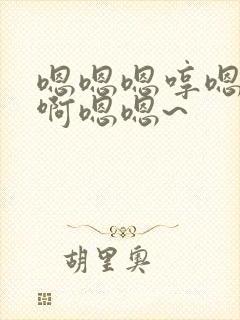 嗯嗯嗯哼嗯
啊嗯嗯~
胡里奥